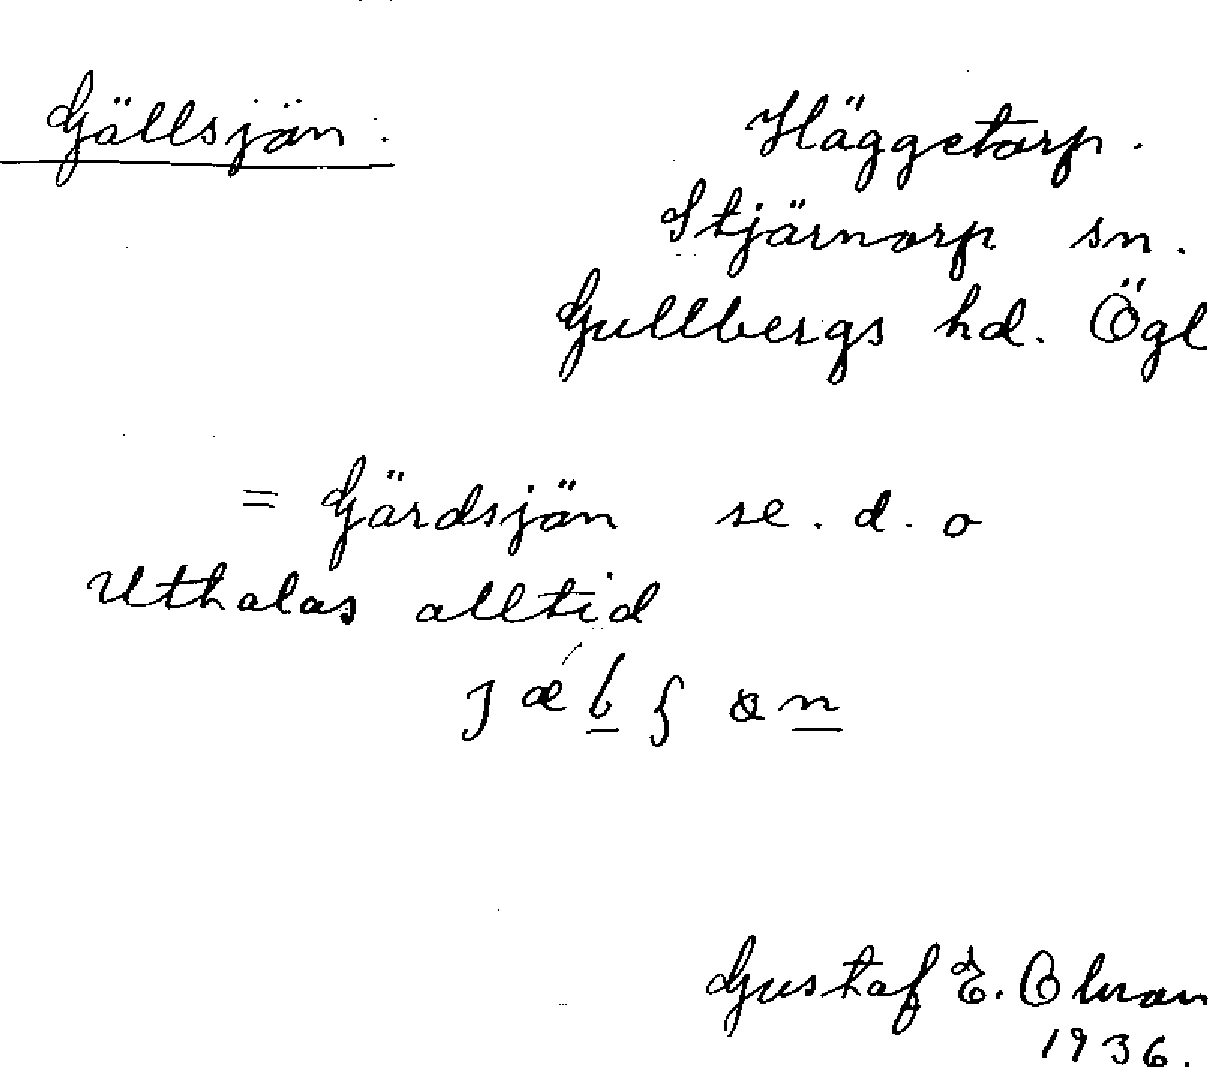 Gällsjön.
Häggetorp.
Stjärnorp sn.
Gullbergs hd. Ögl
= Gärdsjön se. d. o
Uthalas alltid
Gustaf E.
1936.